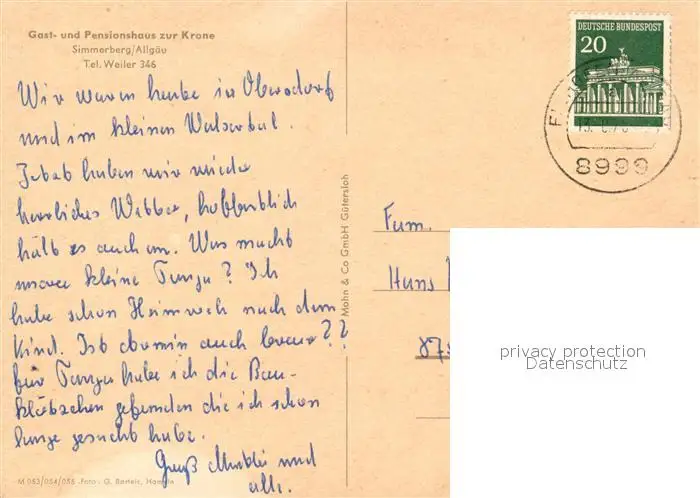 Gast- und Pensionshaus zur Krone
Simmerberg/Allgäu
Tel. Weiler 346
Wir waren heute in Oberstdorf
und im kleinen Walsertal.
Jetzt haben wir wieder
herrliches Wetter, hoffentlich
hält es auch an. Was macht
unsere kleine Tanja? Ich
habe schon Heimweh nach dem
Kind. Ist auch brav??
für Tanja habe ich die Bau-
klötzchen gefunden die ich schon
lange gesucht habe.
Gruß und
alle.
M 053/054/055 -Foto: G. Barteis, Hameln
Mohn & Co GmbH Gütersloh
DEUTSCHE BUNDESPOST
20
8999
Fam.
Hans
873
privacy protection
Datenschutz